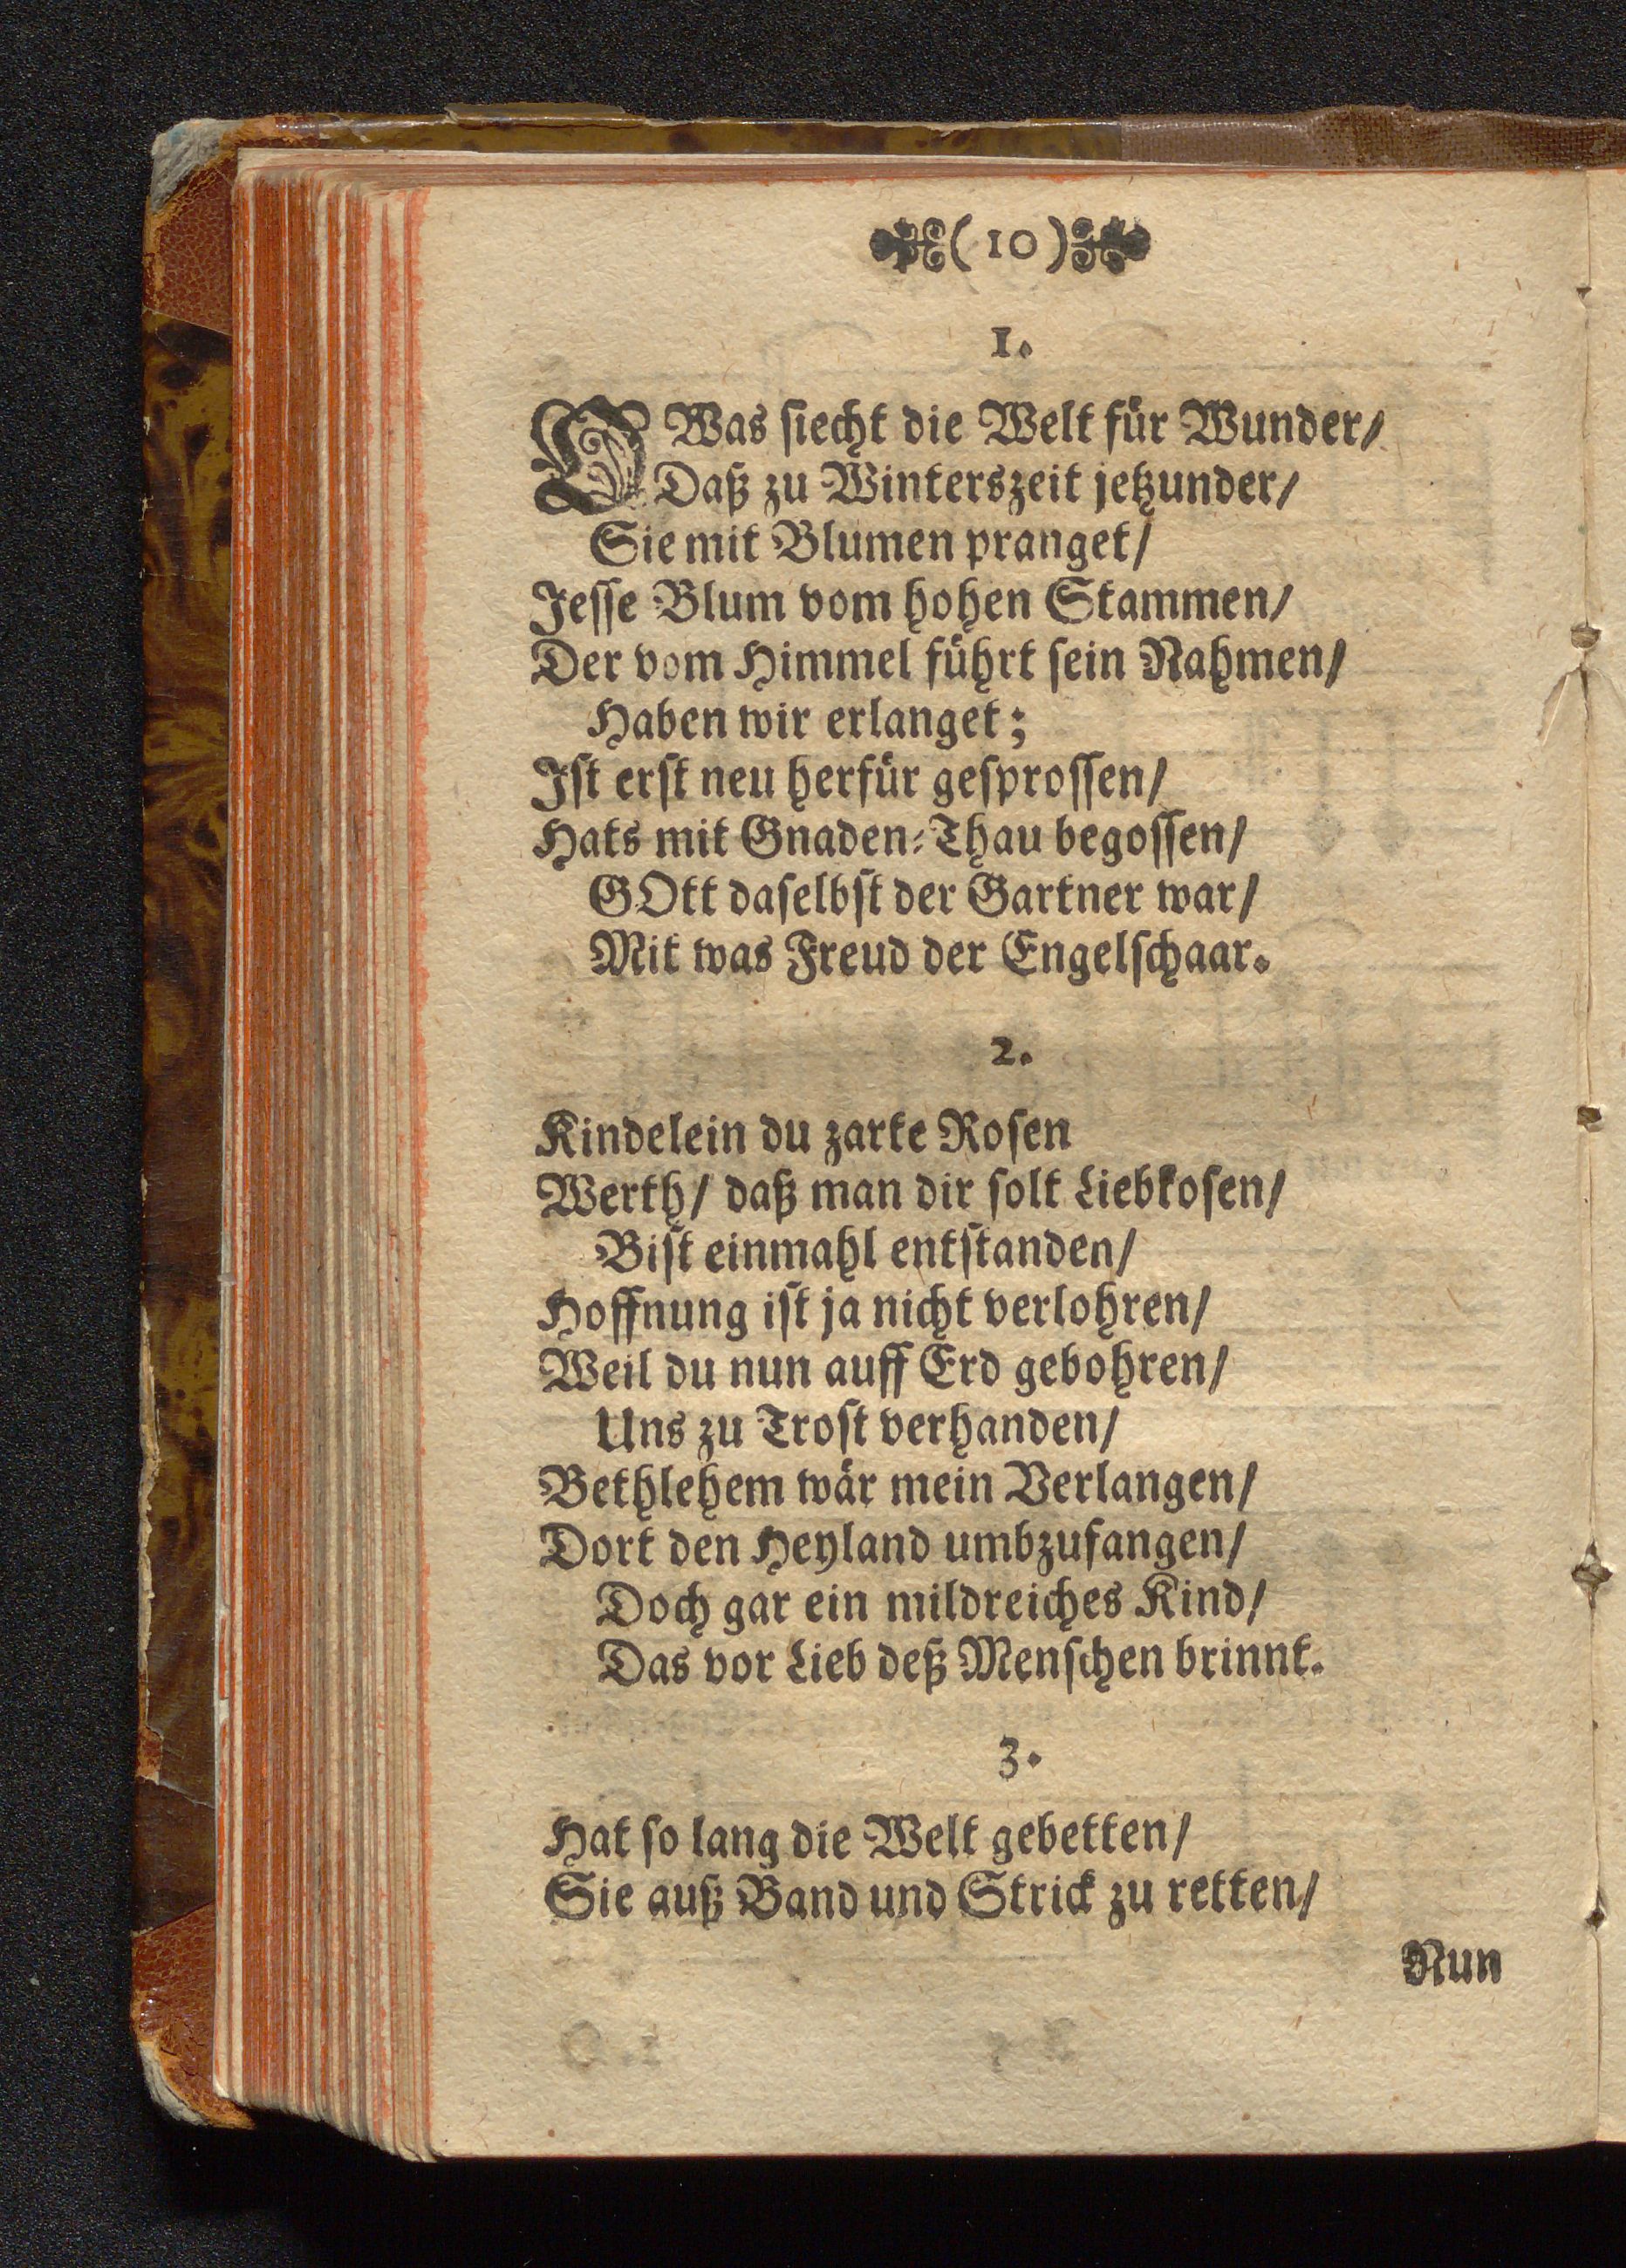 (10)
1.
O Was siecht die Welt für Wunder/
Daß zu Winterszeit jetzunder/
Sie mit Blumen pranget/
Jesse Blum vom hohen Stammen/
Der vom Himmel führt sein Nahmen/
Haben wir erlanget;
Ist erst neu herfür gesprossen/
Hats mit Gnaden-Thau begossen/
GOtt daselbst der Gartner war/
Mit was Freud der Engelschaar.
2.
Kindelein du zarte Rosen
Werth/ daß man dir solt Liebkosen/
Bist einmahl entstanden/
Hoffnung ist ja nicht verlohren/
Weil du nun auff Erd gebohren/
Uns zu Trost verhanden/
Bethlehem wär mein Verlangen/
Dort den Heyland umbzufangen/
Doch gar ein mildreiches Kind/
Das vor Lieb deß Menschen brinnt.
3.
Hat so lang die Welt gebetten/
Sie auß Band und Strick zu retten/
Nun